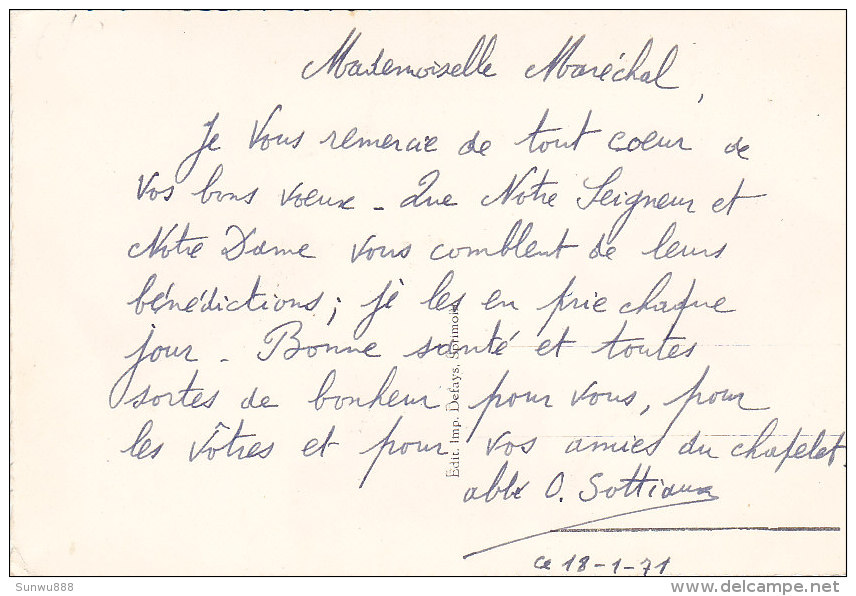 Mademoiselle Maréchal,
Je vous remercie de tout coeur de
vos bons voeux - Que Notre Seigneur et
Notre Dame vous comblent de leurs
bénédictions ; je les en prie chaque
jour - Bonne santé et toutes
sortes de bonheur pour vous, pour
les vôtres et pour vos amies du chapelet.
abbé O. Sottiaux
ce 18-1-71
Edit. Imp. Defays, Sprimont
Sunwu888
delcampe.net